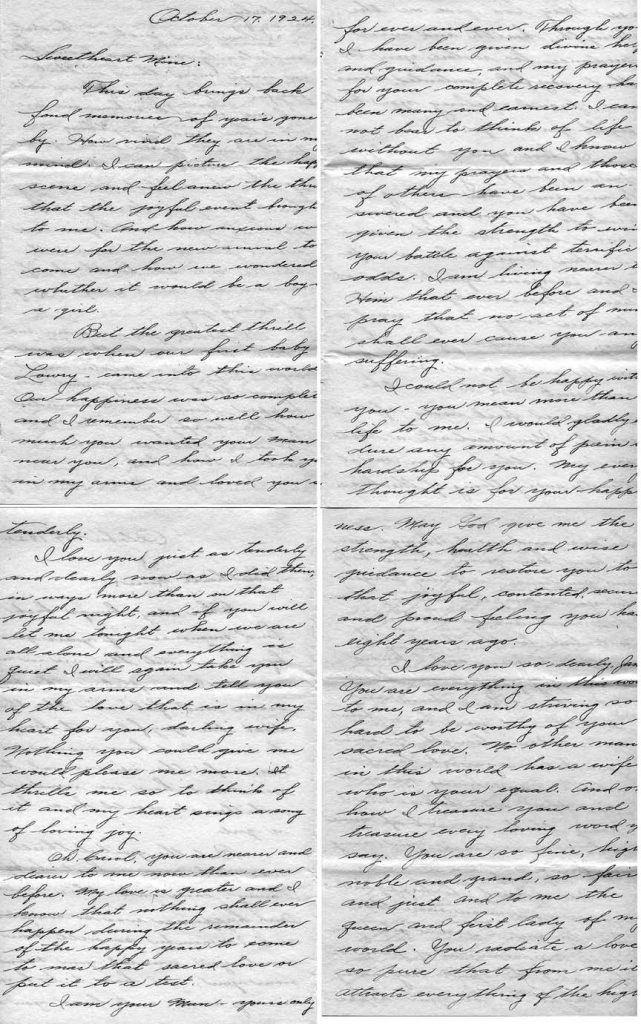 October 17, 1924.
Sweetheart Mine:
This day brings back
fond memories of years gone
by. How vivid they are in m
mind. I can picture the hap
scene and feel anew the thr
that the joyful event brough
to me. And how anxious w
were for the new arrival to
come and how we wondered
whether it would be a boy
a girl.
But the greatest thrill
was when our first baby
Lowry - came into this world
Our happiness was so complet
and I remember so well how
much you wanted your man
near you, and how I took y
in my arms and loved you s
tenderly.
I love you just as tenderly
and dearly now as I did then,
in ways more than on that
joyful night, and if you will
let me tonight when we are
all alone and everything is
quiet I will again take you
in my arms and tell you
of the love that is in my
heart for you, darling wife,
Nothing you could give me
would please me more. It
thrills me so to think of
it and my heart sings a song
of loving joy.
Oh Carol, you are nearer and
dearer to me now than ever
before. My love is greater and I
know that nothing shall ever
happen during the remainder
of the happy years to come
to mar that sacred love or
put it to a test.
I am your Man - yours only
for ever and ever. Through yo
I have been given divine hel
and guidance, and my prayer
for your complete recovery ha
been many and earnest. I can
not bear to think of life
without you and I know
that my prayers and those
of others have been an
swered and you have been
given the strength to win
your battle against terrific
odds. I am living nearer
Him that ever before and
pray that no act of mine
shall ever cause you any
suffering.
I could not be happy with
you - you mean more than
life to me. I would gladly
dure any amount of pain
hardship for you. My ever
thought is for your happ
ness. May God give me the
strength, health and wise
guidance to restore you to
that joyful, contented, secur
and proud feeling you ha
eight years ago.
I love you so dearly,
You are everything in this wor
to me, and I am striving so
hard to be worthy of your
sacred love. No other man
in this world has a wife
who is your equal. And o
how I treasure you and
treasure every loving word y
say. You are so fine, hig
noble and grand, so fair
and just and to me the
queen and first lady of my
world. You radiate a love
so pure that from me i
attracts everything of the high